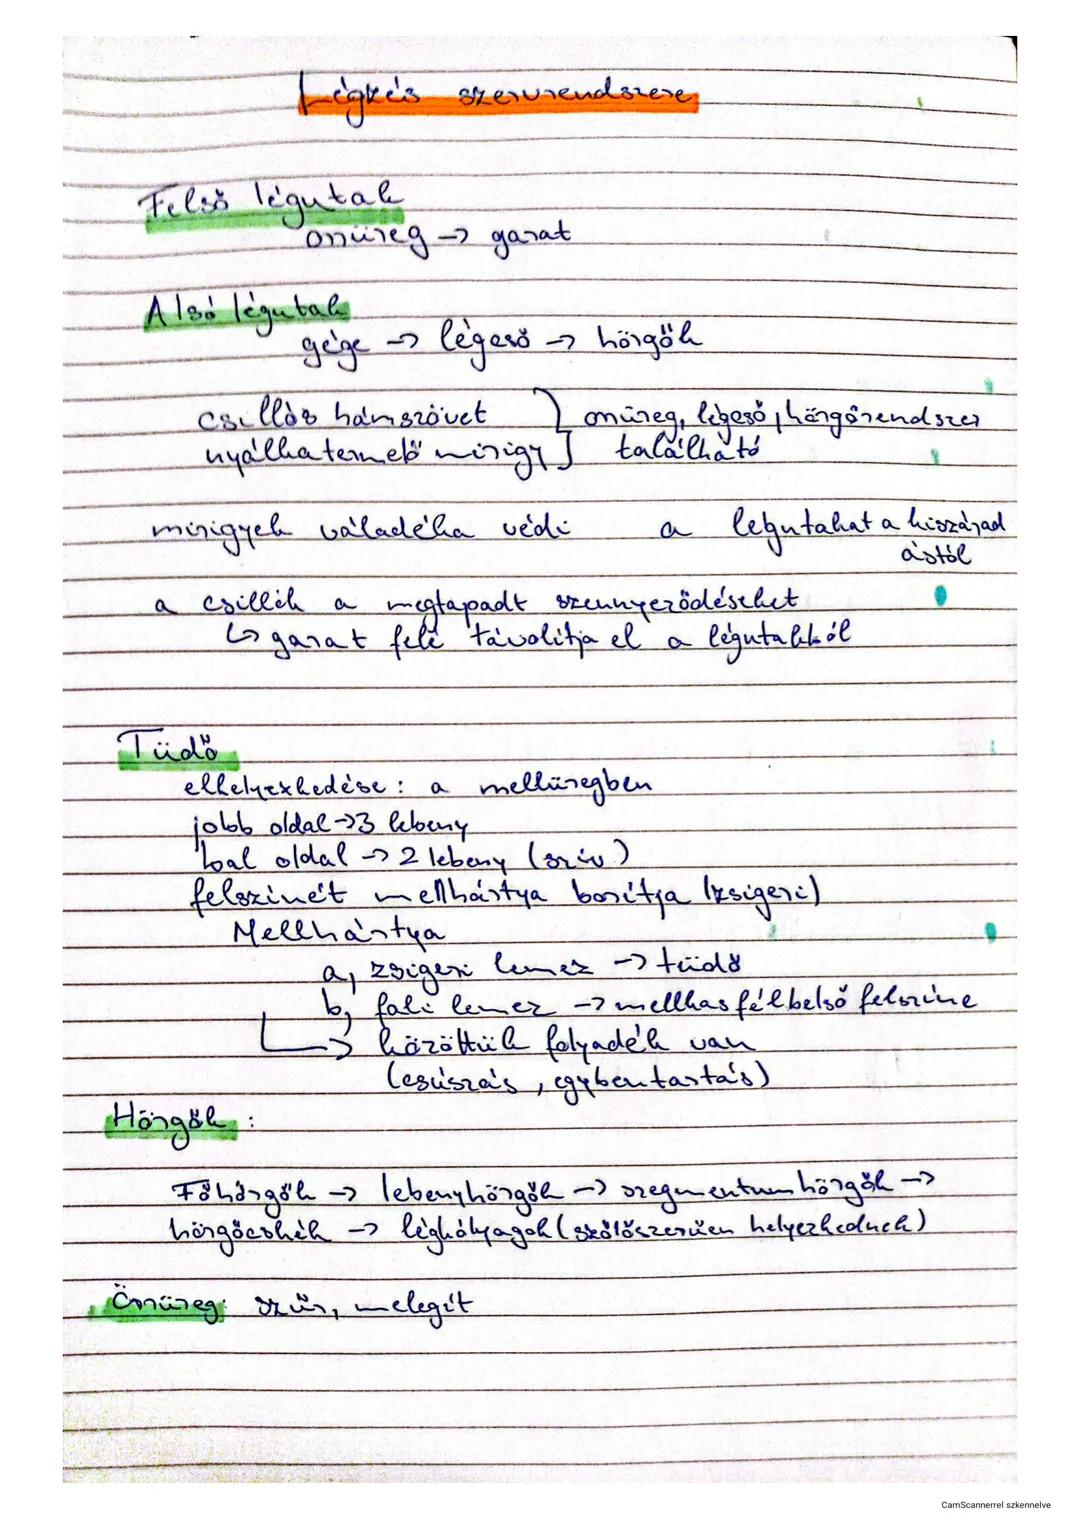 Légzés szervrendszere
Felső légutak
orrüreg → garat
Alsó légutak
gége → légcső → hörgők
csillós hámszövet } orrüreg, légcső, hörgőrendszer
nyálkatermelő mirigy } található
mirigyek váladéka védi a légutakat a kiszárad
ástól
a csillék a megtapadt szennyeződéseket
↳ garat felé távolítja el a légutakból
Tüdő
elhelyezkedése: a mellüregben
jobb oldal → 3 lebeny
bal oldal → 2 lebeny (szív)
felszínét mellhártya borítja (zsigeri)
Mellhártya
a, zsigeri lemez → tüdő
b, fali lemez → mellkas fél belső felszíne
↳ közöttük folyadék van
(csúszás, egybentartás)
Hörgők:
Főhörgők → lebenyhörgők → szegmentumhörgők →
hörgőcskék → léghólyagok (szőlőszerűen helyezkednek)
Orrüreg: szűr, melegít
CamScannerrel szkennelve